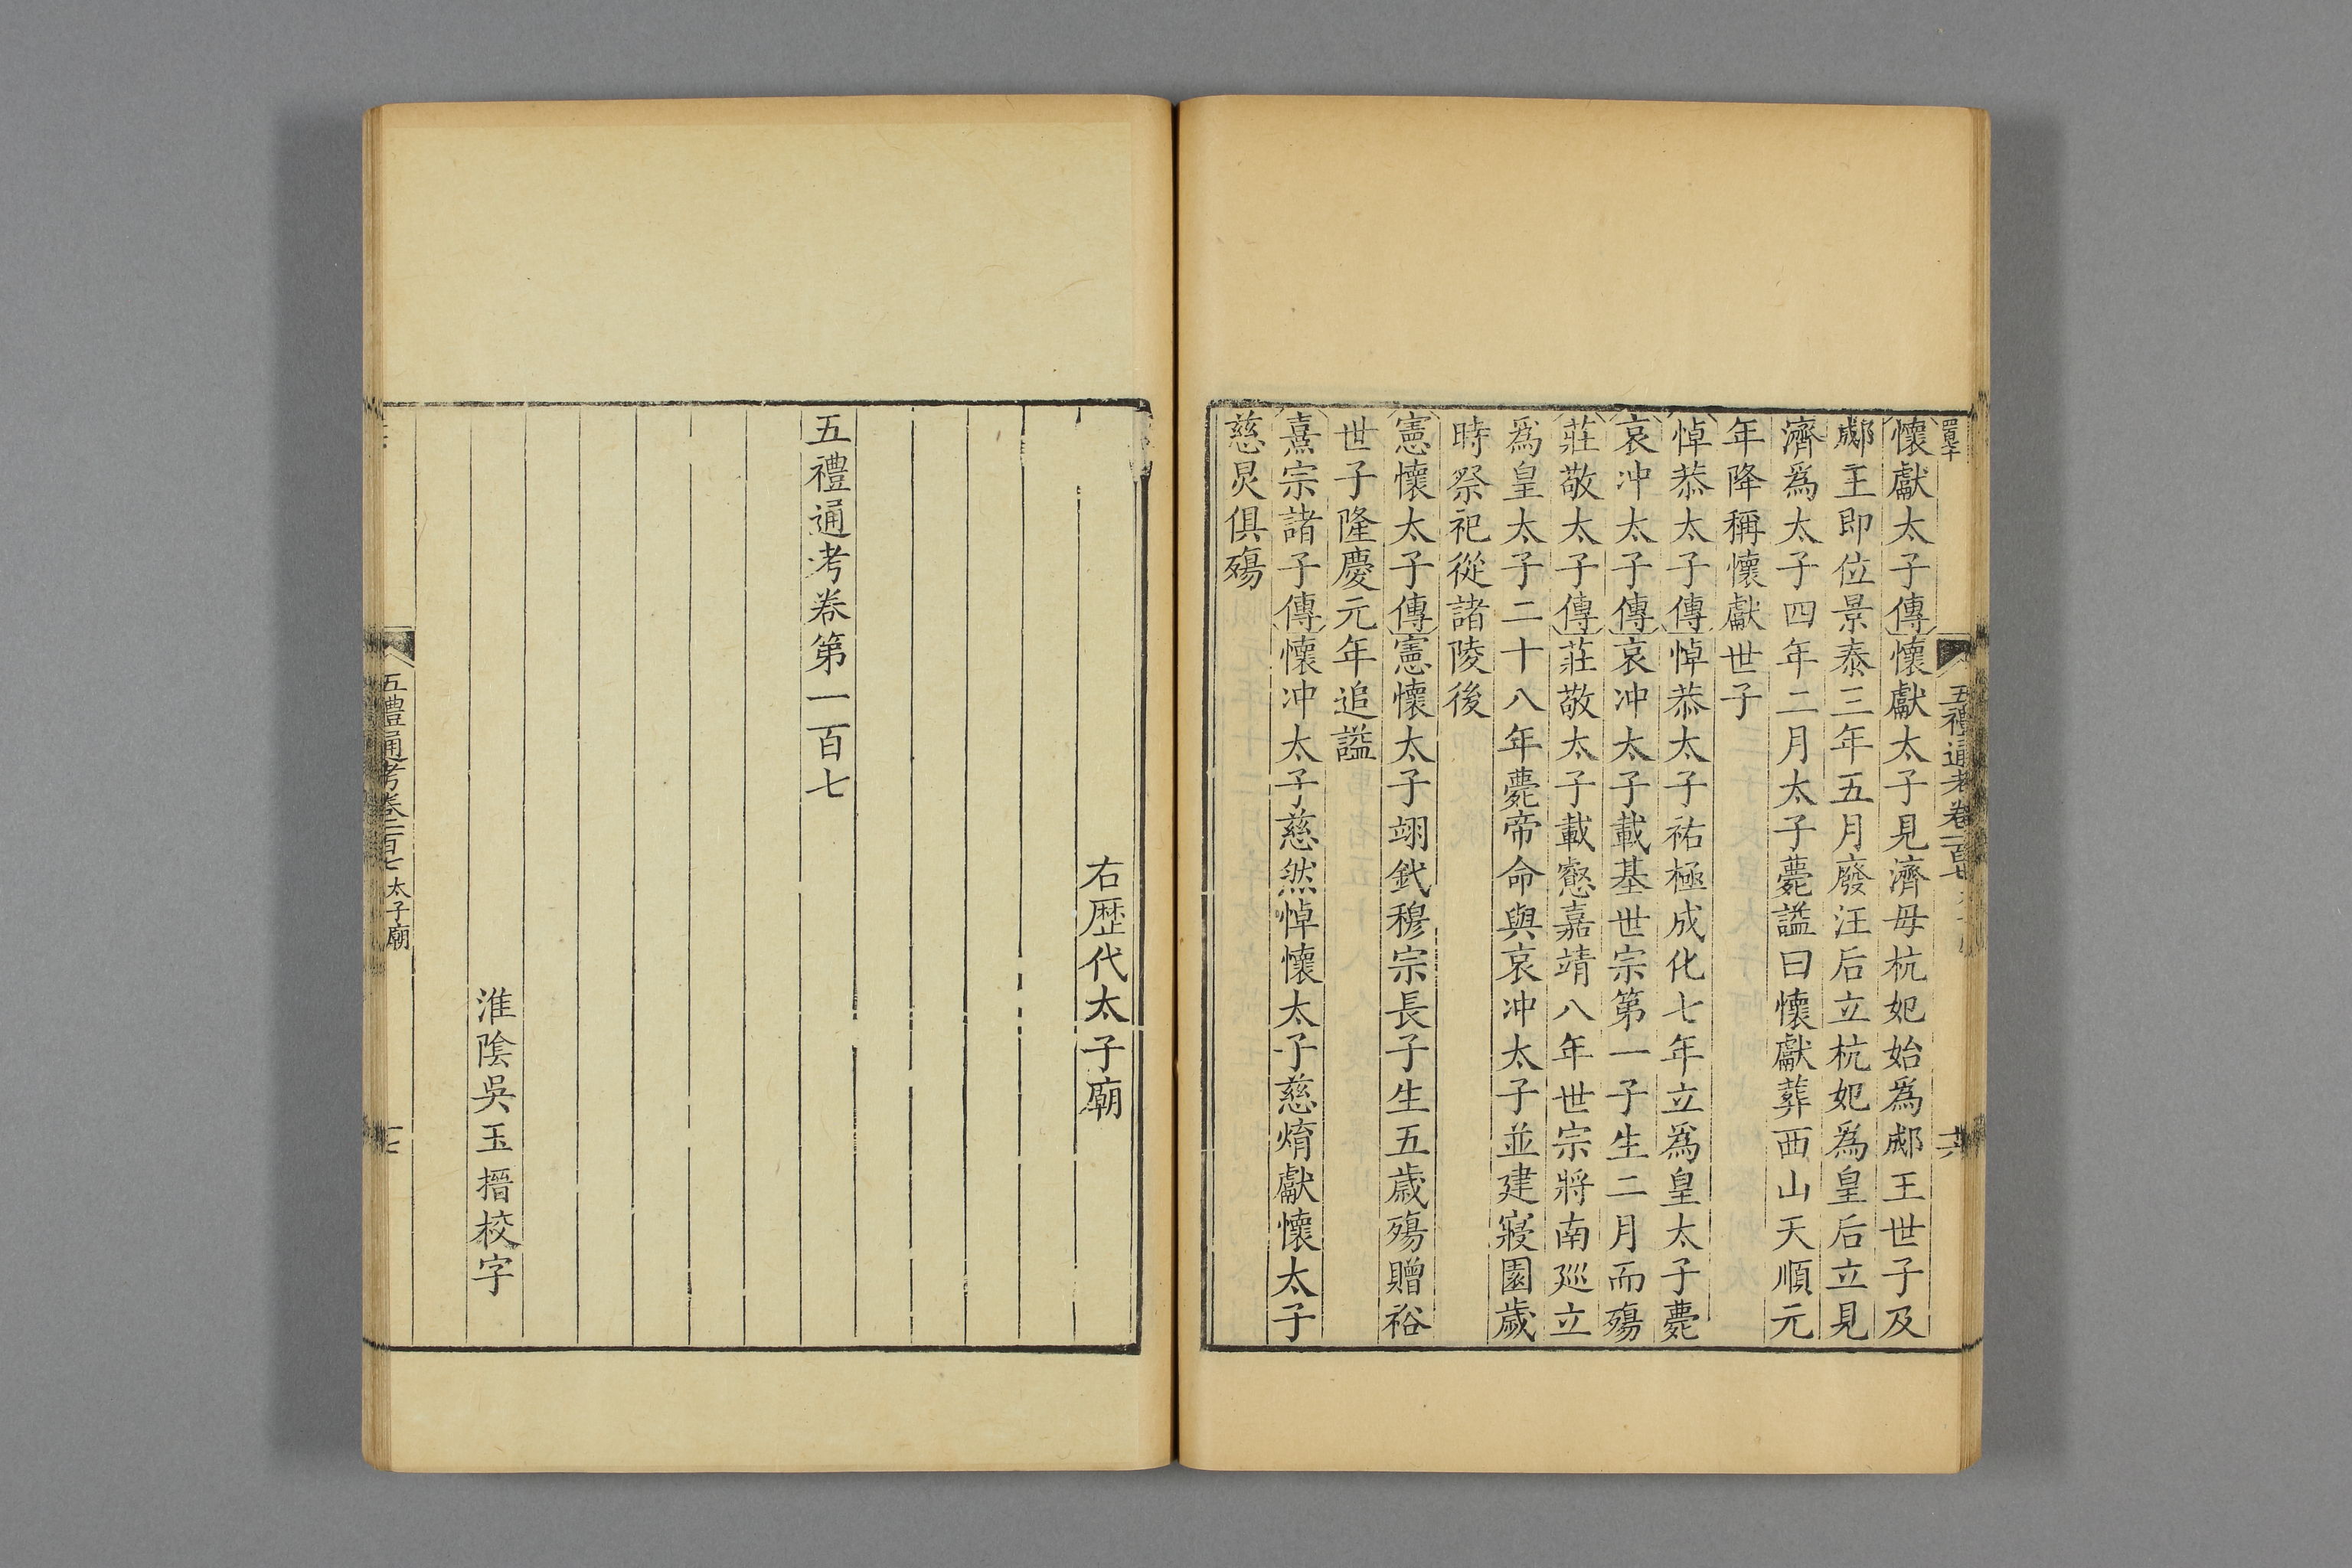 懷獻太子傳懷獻太子見濟母杭妃始為郕王世子及
郕王即位景泰三年五月廢汪后立杭妃為皇后立見
濟為太子四年二月太子薨謚曰懷獻葬西山天順元
年降稱懷獻世子
悼恭太子傳悼恭太子祐極成化七年立為皇太子薨
哀冲太子傳哀冲太子載基世宗第一子生二月而殤
莊敬太子傳莊敬太子載壑嘉靖八年世宗將南廵立
為皇太子二十八年薨帝命與哀冲太子並建寢園歲
時祭祀從諸陵後
憲懷太子傳憲懷太子翊釴穆宗長子生五歲殤贈裕
世子隆慶元年追謚
熹宗諸子傳懷冲太子慈然悼懷太子慈焴獻懷太子
慈炅俱殤
五禮通考卷一百七
右歷代太子廟
五禮通考卷第一百七
淮陰吳玉搢校字
五禮通考卷一百七 太子廟
十七